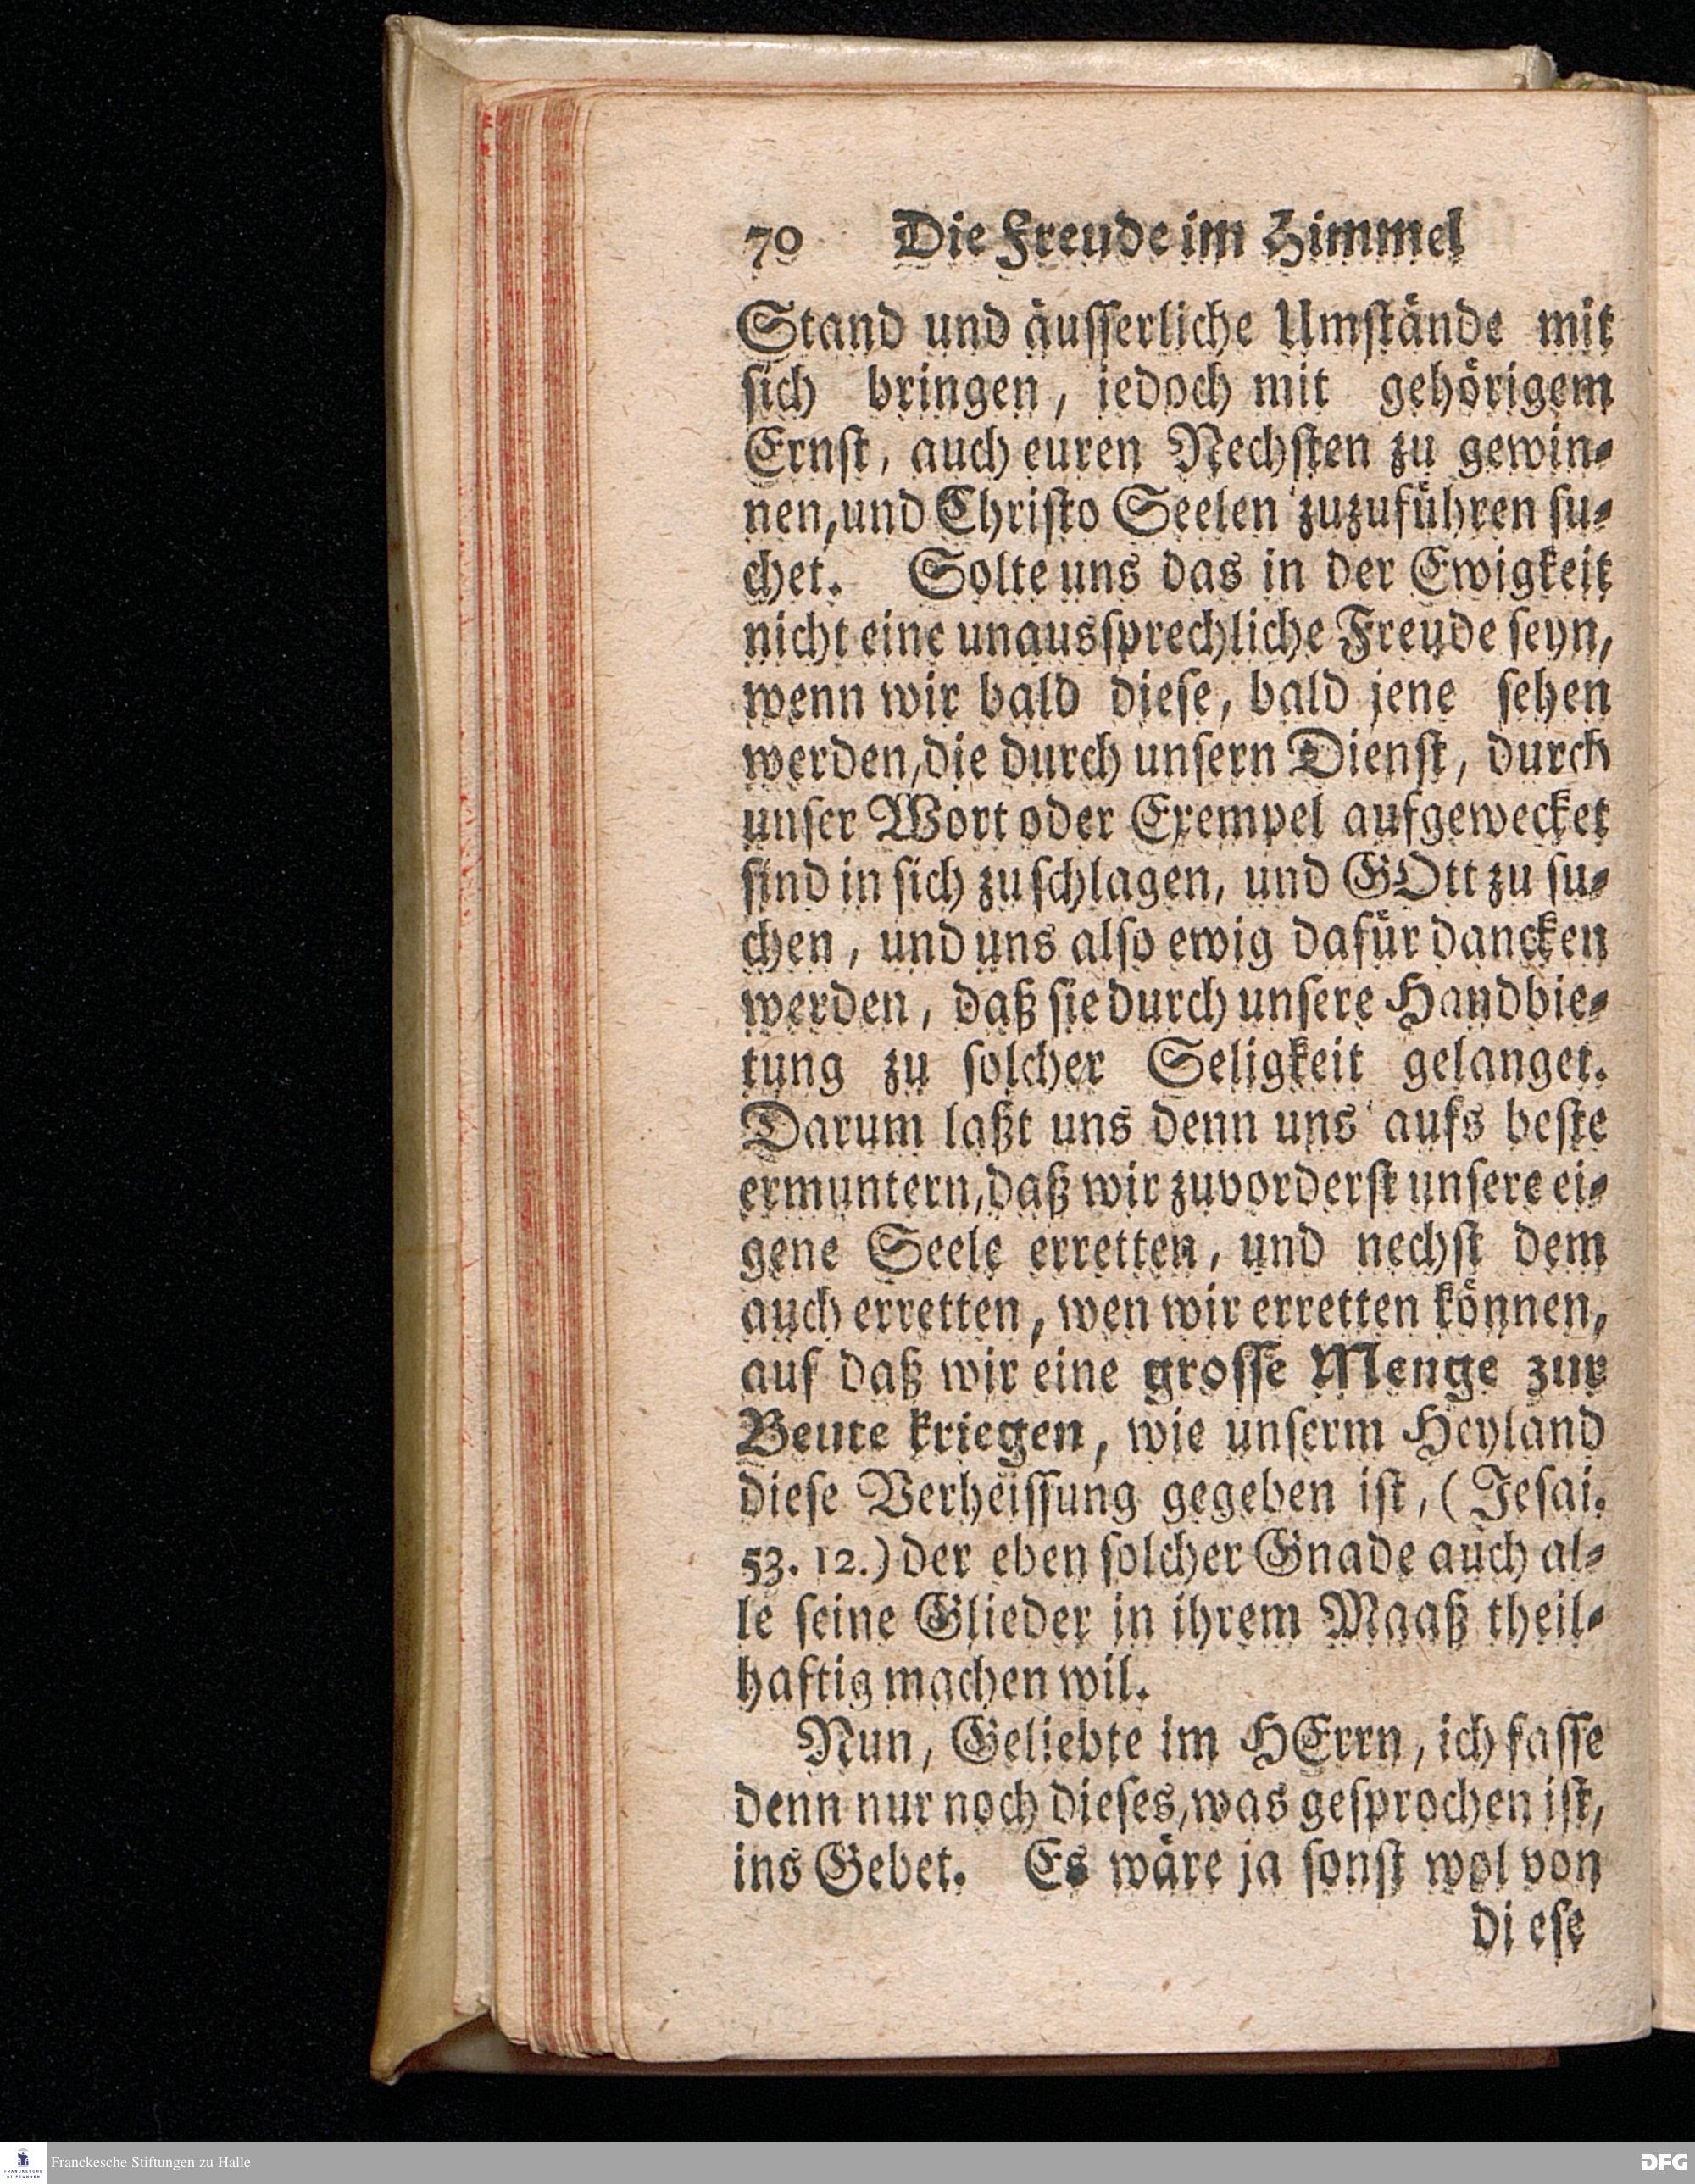 70 Die Freude im Himmel
Stand und äusserliche Umstände mit
sich bringen, jedoch mit gehörigem
Ernst, auch euren Nechsten zu gewin⸗
nen, und Christo Seelen zuzuführen su⸗
chet. Solte uns das in der Ewigkeit
nicht eine unaussprechliche Freude seyn,
wenn wir bald diese, bald jene sehen
werden, die durch unsern Dienst, durch
unser Wort oder Exempel aufgewecket
sind in sich zu schlagen, und GOtt zu su⸗
chen, und uns also ewig dafür dancken
werden, daß sie durch unsere Handbie⸗
tung zu solcher Seligkeit gelanget.
Darum laßt uns denn uns aufs beste
ermuntern, daß wir zuvorderst unsere ei⸗
gene Seele erretten, und nechst dem
auch erretten, wen wir erretten können,
auf daß wir eine grosse Menge zur
Beute kriegen, wie unserm Heyland
diese Verheissung gegeben ist, (Jesai.
53. 12.) der eben solcher Gnade auch al⸗
le seine Glieder in ihrem Maaß theil⸗
haftig machen wil.
Nun, Geliebte im HErrn, ich fasse
denn nur noch dieses, was gesprochen ist,
ins Gebet. Es wäre ja sonst wol von
di ese
FRANCKESCHE STIFTUNGEN
Franckesche Stiftungen zu Halle
DFG